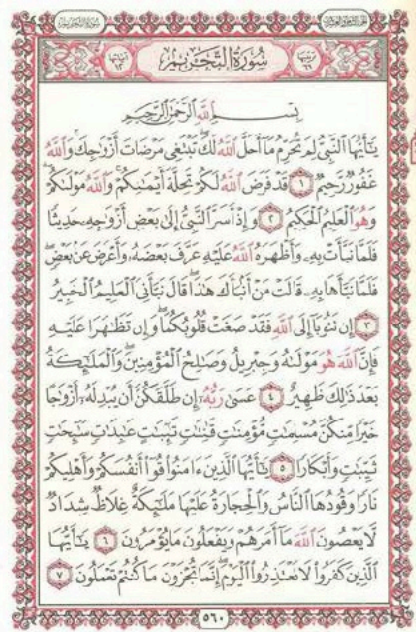 الجزء الثامن والعشرون
سورة التحريم
ترتيبها ٦٦
سُورَةُ التَّحْرِيمِ
آياتها ١٢
بِسْمِ ٱللَّهِ ٱلرَّحْمَٰنِ ٱلرَّحِيمِ
يَٰٓأَيُّهَا ٱلنَّبِىُّ لِمَ تُحَرِّمُ مَآ أَحَلَّ ٱللَّهُ لَكَ تَبْتَغِى مَرْضَاتَ أَزْوَٰجِكَ وَٱللَّهُ
غَفُورٌ رَّحِيمٌ ١ قَدْ فَرَضَ ٱللَّهُ لَكُمْ تَحِلَّةَ أَيْمَٰنِكُمْ وَٱللَّهُ مَوْلَىٰكُمْ
وَهُوَ ٱلْعَلِيمُ ٱلْحَكِيمُ ٢ وَإِذْ أَسَرَّ ٱلنَّبِىُّ إِلَىٰ بَعْضِ أَزْوَٰجِهِۦ حَدِيثًا
فَلَمَّا نَبَّأَتْ بِهِۦ وَأَظْهَرَهُ ٱللَّهُ عَلَيْهِ عَرَّفَ بَعْضَهُۥ وَأَعْرَضَ عَنۢ بَعْضٍ
فَلَمَّا نَبَّأَهَا بِهِۦ قَالَتْ مَنْ أَنۢبَأَكَ هَٰذَا قَالَ نَبَّأَنِىَ ٱلْعَلِيمُ ٱلْخَبِيرُ
٣ إِن تَتُوبَآ إِلَى ٱللَّهِ فَقَدْ صَغَتْ قُلُوبُكُمَا وَإِن تَظَٰهَرَا عَلَيْهِ
فَإِنَّ ٱللَّهَ هُوَ مَوْلَىٰهُ وَجِبْرِيلُ وَصَٰلِحُ ٱلْمُؤْمِنِينَ وَٱلْمَلَٰٓئِكَةُ
بَعْدَ ذَٰلِكَ ظَهِيرٌ ٤ عَسَىٰ رَبُّهُۥٓ إِن طَلَّقَكُنَّ أَن يُبْدِلَهُۥٓ أَزْوَٰجًا
خَيْرًا مِّنكُنَّ مُسْلِمَٰتٍ مُّؤْمِنَٰتٍ قَٰنِتَٰتٍ تَٰٓئِبَٰتٍ عَٰبِدَٰتٍ سَٰٓئِحَٰتٍ
ثَيِّبَٰتٍ وَأَبْكَارًا ٥ يَٰٓأَيُّهَا ٱلَّذِينَ ءَامَنُوا۟ قُوٓا۟ أَنفُسَكُمْ وَأَهْلِيكُمْ
نَارًا وَقُودُهَا ٱلنَّاسُ وَٱلْحِجَارَةُ عَلَيْهَا مَلَٰٓئِكَةٌ غِلَاظٌ شِدَادٌ
لَّا يَعْصُونَ ٱللَّهَ مَآ أَمَرَهُمْ وَيَفْعَلُونَ مَا يُؤْمَرُونَ ٦ يَٰٓأَيُّهَا
ٱلَّذِينَ كَفَرُوا۟ لَا تَعْتَذِرُوا۟ ٱلْيَوْمَ إِنَّمَا تُجْزَوْنَ مَا كُنتُمْ تَعْمَلُونَ ٧
٥٦٠